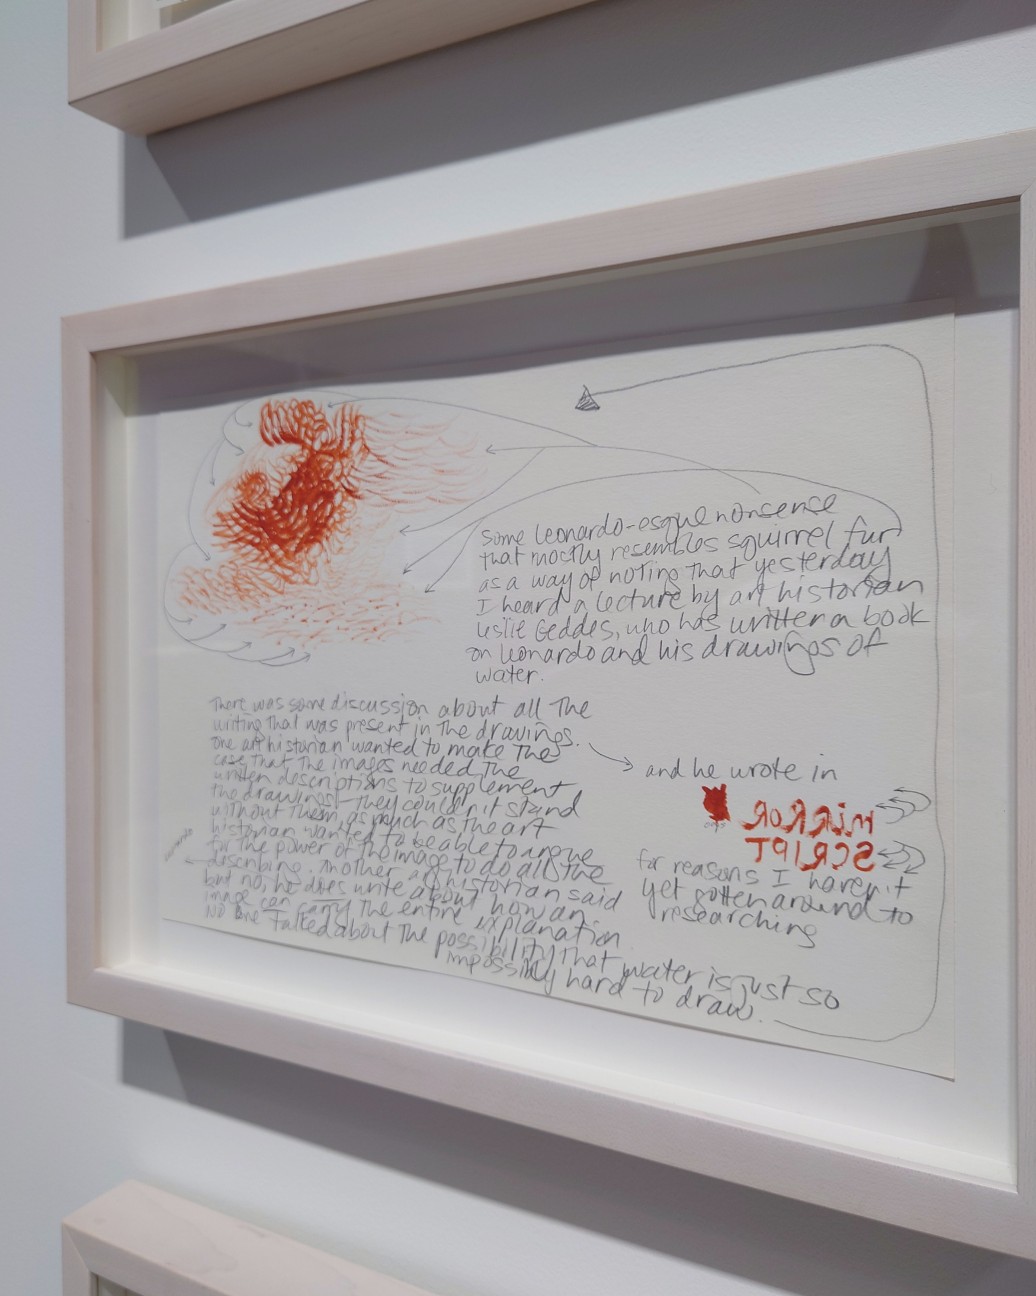 Some Leonardo-esque nonsense
that mostly resembles squirrel fur
as a way of noting that yesterday
I heard a lecture by art historian
Leslie Geddes, who has written a book
on Leonardo and his drawings of
water.
There was some discussion about all the
writing that was present in the drawings.
One art historian wanted to make the
case that the images needed the
written descriptions to supplement
the drawings — they couldn't stand
without them, as much as the art
historian wanted to be able to argue
for the power of the image to do all the
describing. Another art historian said
but no, he does write about how an
image can carry the entire explanation
No one talked about the possibility that water is just so
impossibly hard to draw.
and he wrote in
oops
MIRROR
SCRIPT
for reasons I haven't
yet gotten around to
researching